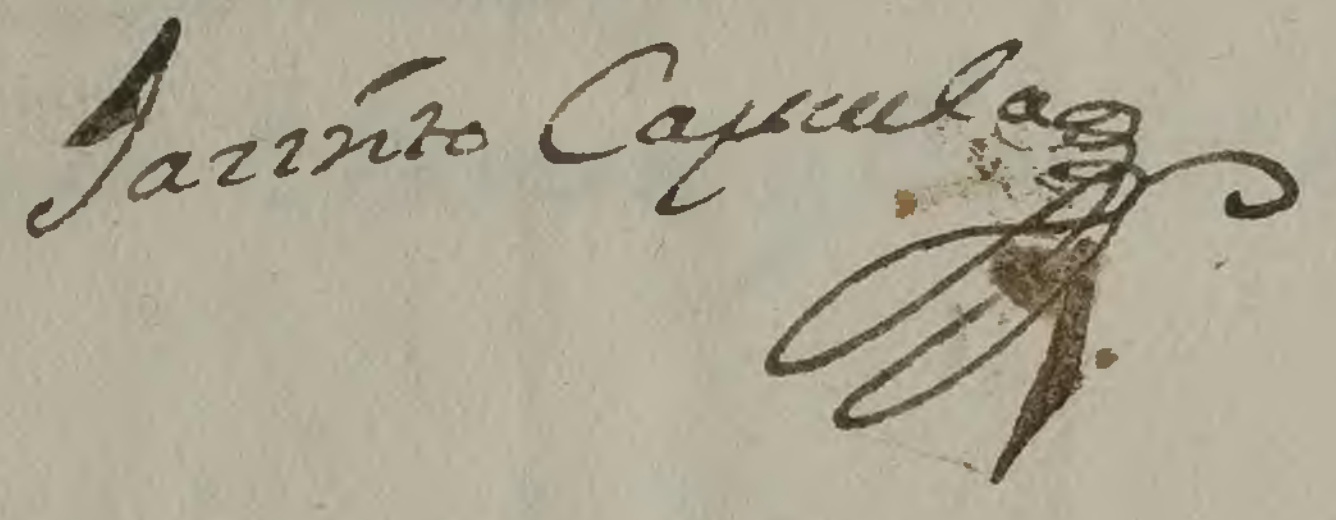 Jacinto Cayuela